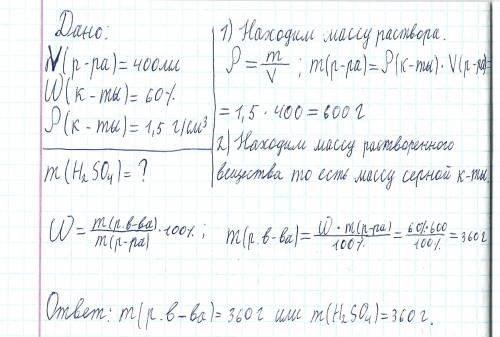 Дано:
V(р-ра)=400мл
W(к-ты)=60%
ρ(к-ты)=1,5 г/см³
m(H₂SO₄)=?
1) Находим массу раствора.
ρ = m/V ; m(р-ра)=ρ(к-ты)·V(р-ра)=
=1,5·400=600г
2) Находим массу растворенного
вещества то есть массу серной к-ты.
W = m(р.в-ва)/m(р-ра) ·100% ; m(р.в-ва)= W·m(р-ра)/100% = 60%·600/100% =360г
Ответ: m(р.в-ва)=360г или m(H₂SO₄)=360г.